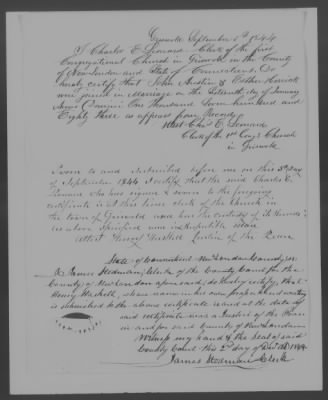 Griswold September 5th 1844
I Charles E. Leonard Clerk of the first
Congregational Church in Griswold in the County
of New London and State of Connecticut, Do
hereby certify that John Austin & Esther Herrick
were joined in Marriage on the sixteenth day of January
Anno Domini One thousand seven hundred and
Eighty three as appears from Records
Attest Chas E. Leonard
Clerk of the 1st Cong. Church
in Griswold
Sworn to and subscribed before me on this 5th Day
of September 1844 I certify that the said Charles E.
Leonard who has signed & sworn to the foregoing
certificate is at this time clerk of the Church in
the town of Griswold has the custody of its Records
as above specified
Attest Henry Justice of the Peace
State of Connecticut New London County, ss
I James Stedman, Clerk of the County Court for the
County of New London do hereby certify, that
Henry whose name in his own proper hand writing
is subscribed to the above certificate was at the date of
said certificate was a Justice of the Peace
in and for said County of New London
Witness my hand & the Seal of said
County Court this 2d day of 1844
James Stedman Clerk